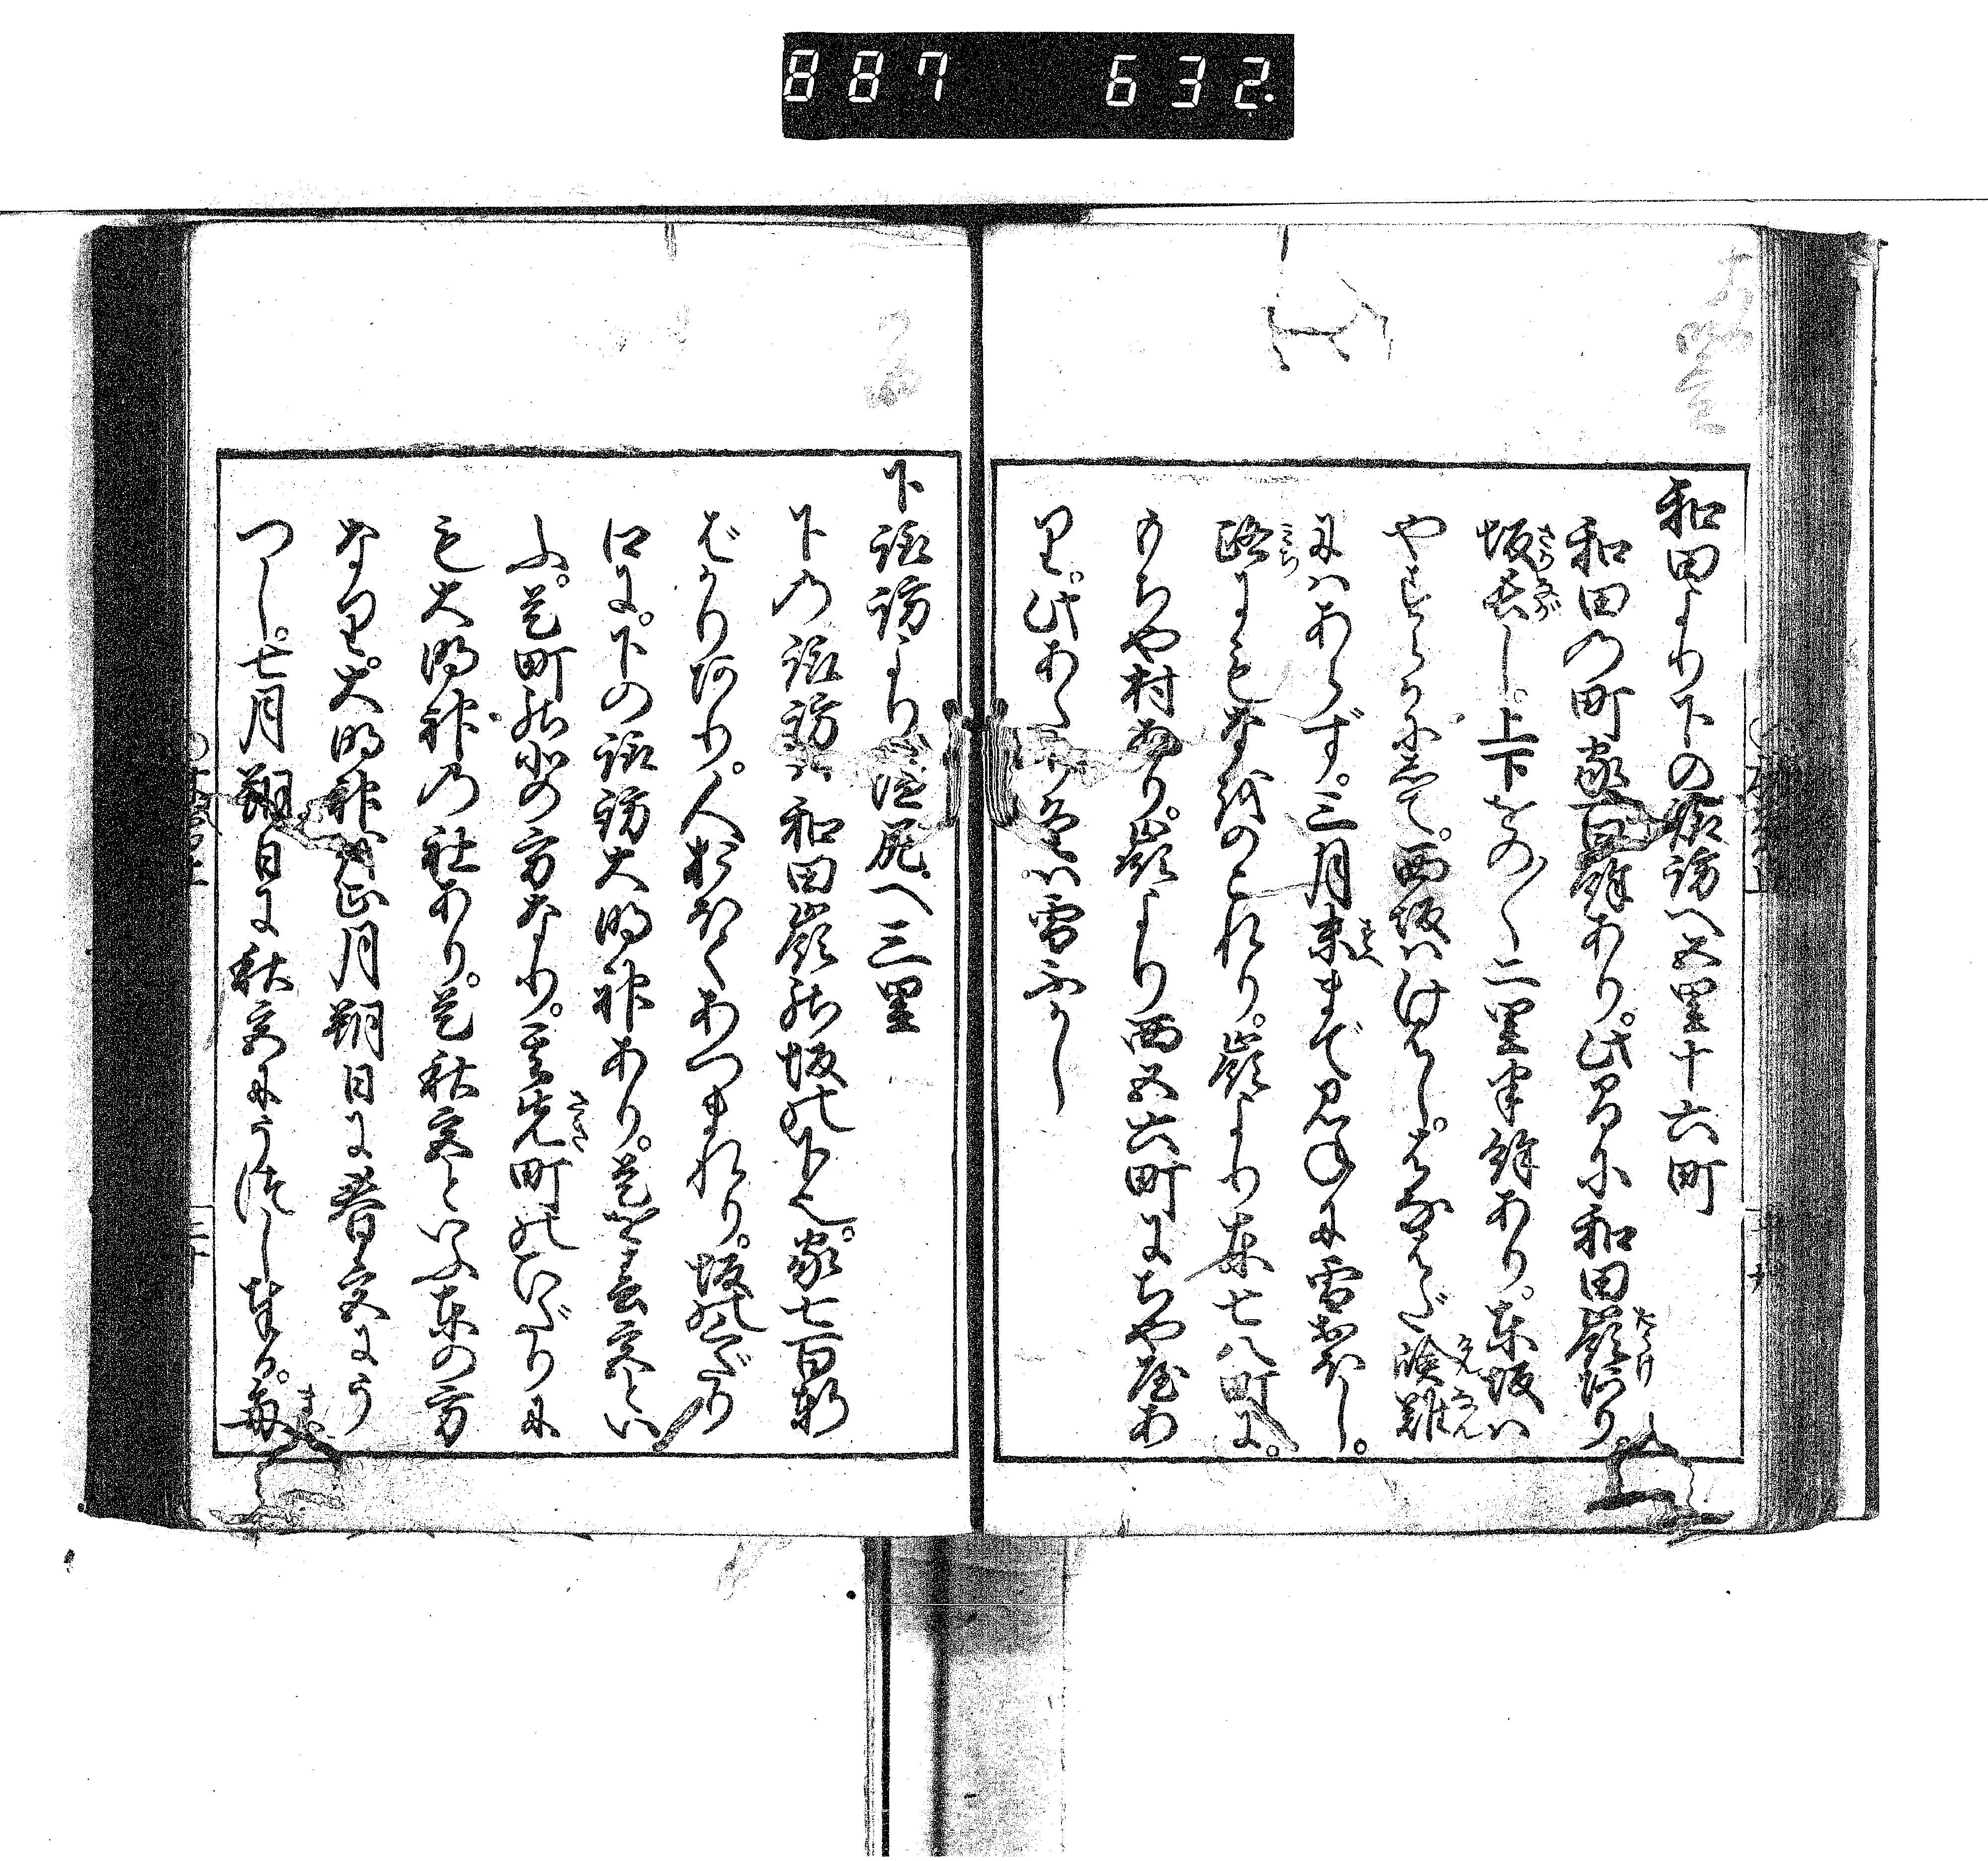 887 632.
和田より下の諏訪へ五里十六町
和田の町家百餘あり。此間に和田嶺あり。
坂長し。上下をの〳〵二里半餘あり。東坂ハ
やすらかにして。西坂ハけはし。されど険難
にハあらず。三月末まで
路にもなを
のこれり。嶺より東七八町に。
もちや村あり。嶺より西五六町にちや屋あ
り。此あたり冬ハ雪ふかし
下諏訪より塩尻へ三里
下の諏訪ハ和田嶺の坂の下也。家七百軒
ばかりあり。人おほくあつまれり。坂のくだり
口に。下の諏訪大明神あり。是を春宮とい
ふ。是町の北の方なり。又先町のひだりに
も大明神の社あり。是秋宮といふ東の方
なり。大明神を正月朔日に春宮にう
つし。七月朔日に秋宮にうつし奉る。毎